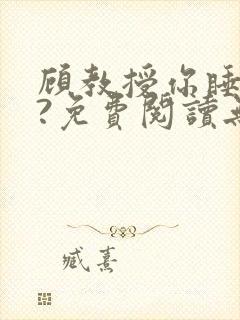 顾教授你睡
?免費閱讀
臧熹